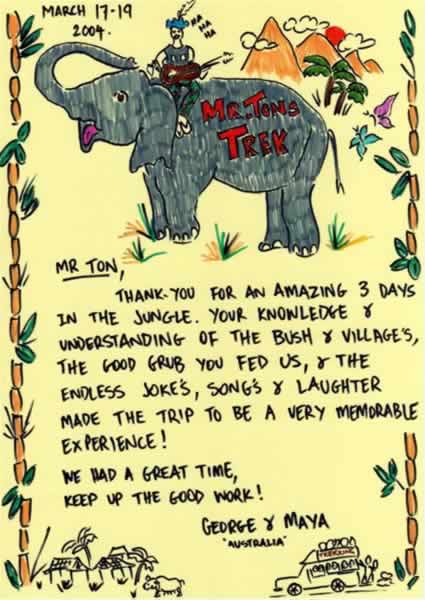 MARCH 17-19
2004.
HA
HA HA
HA
MR. TONS
TREK
MR TON,
THANK-YOU FOR AN AMAZING 3 DAYS
IN THE JUNGLE. YOUR KNOWLEDGE &
UNDERSTANDING OF THE BUSH & VILLAGE'S,
THE GOOD GRUB YOU FED US, & THE
ENDLESS JOKE'S, SONG'S & LAUGHTER
MADE THE TRIP TO BE A VERY MEMORABLE
EXPERIENCE!
WE HAD A GREAT TIME,
KEEP UP THE GOOD WORK!
GEORGE & MAYA
"AUSTRALIA"